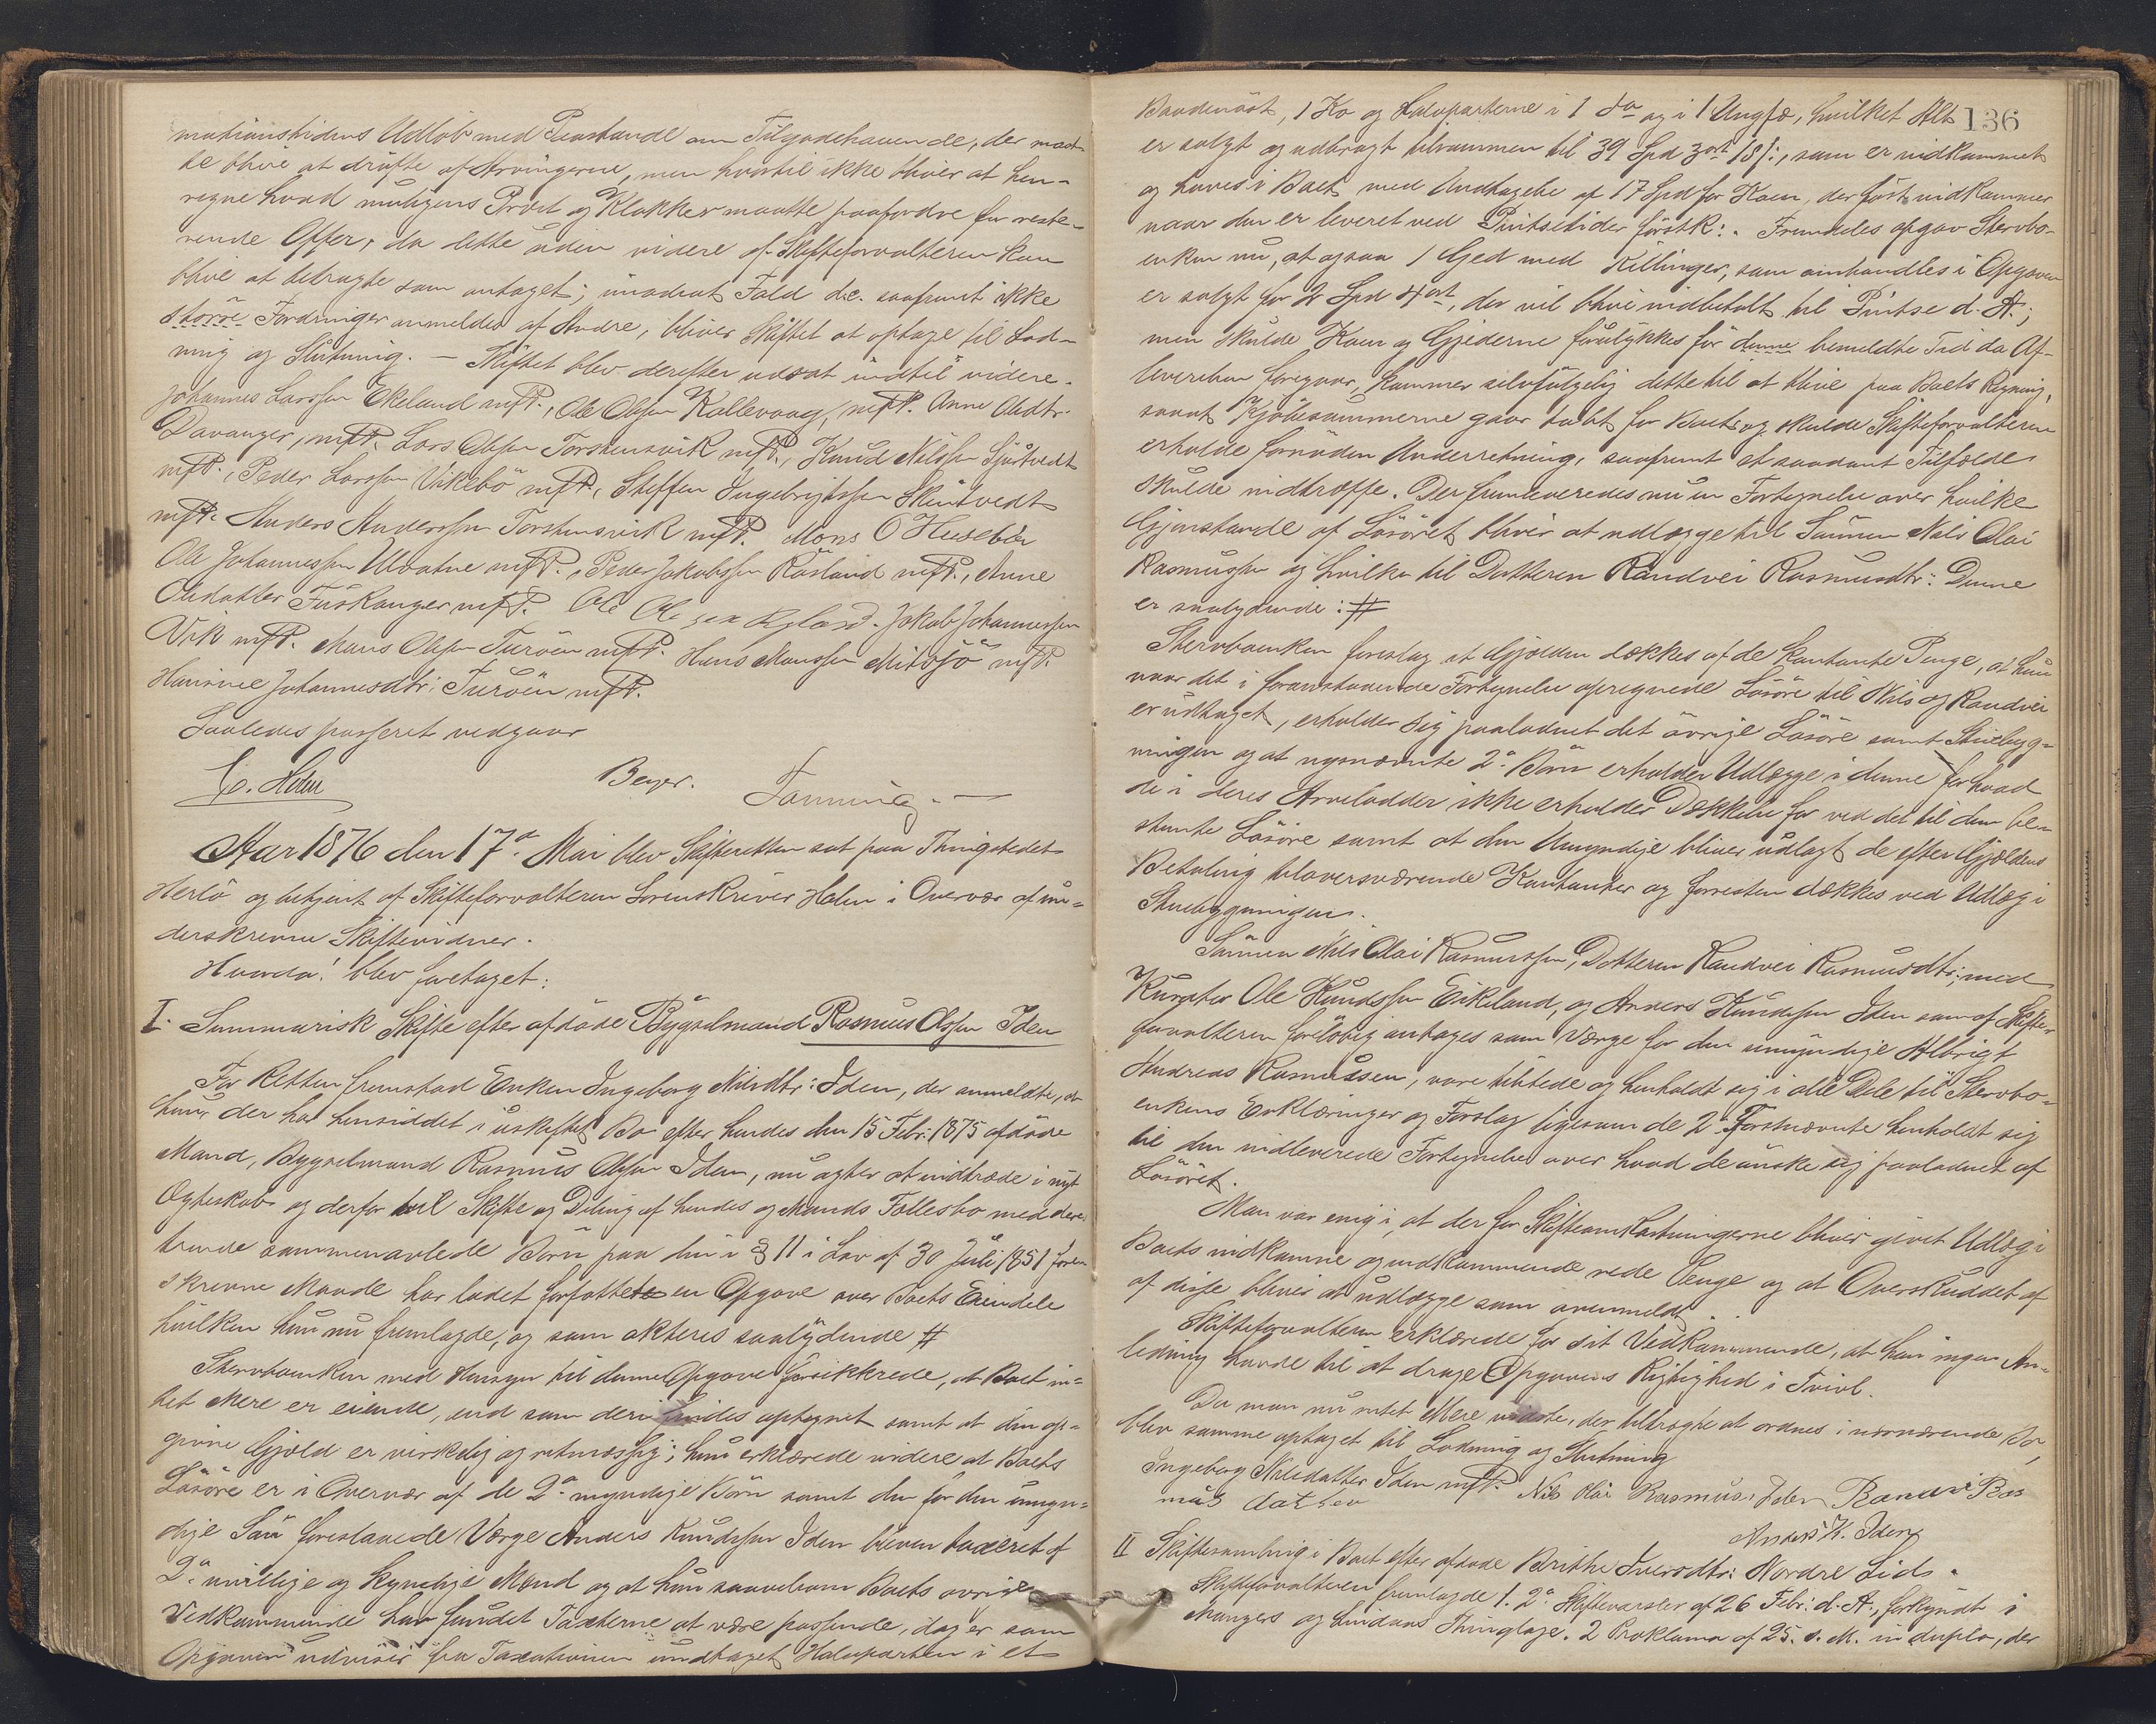 mationstidens Udløb med Paastande om Tilgodehavende, der maat-
te blive at drøfte af Arvingerne, men hvortil ikke bliver at hen-
regne hvad muligens Præst og Klokker maatte paafordre for reste-
rende Offer, da dette uden videre af Skifteforvalteren kan
blive at betragte som antaget; i modsat Fald d.e. saafremt ikke
større Fordringer anmeldes af Andre, bliver Skiftet at optage til Lod-
ning og Slutning. — Skiftet blev derefter udsat indtil videre.
Johannes Larssen Ekeland mfP., Ole Olsen Kallevaag, mfP. Anne Olsdtr.
Davanger, mfP. Lars Olsen Torstensvik mfP., Knud Nilssen Sjurtvedt
mfP., Peder Larssen Vikebø mfP., Steffen Ingebrigtssen Skurtvedt
mfP. Anders Anderssen Torstensvik mfP. Mons O Husebø
Ole Johannessen Ulvatne mfP., Peder Jakobssen Røsland mfP., Anne
Olsdatter Fuskanger mfP. Ole Olesen Ryland. Jakob Johannessen
Vik mfP. Mons Olsen Turøen mfP. Hans Monssen Misøjø mfP.
Hansine Johannesdtr: Turøen mfP.
Saaledes passeret vedgaar
C. Holm Beyer. Fanning. —
Aar 1876 den 17de Mai blev Skifteretten sat paa Thingstedet
Herlø og betjent af Skifteforvalteren Sorenskriver Holm i Overvær af un-
derskrevne Skiftevidner.
Hvorda! blev foretaget:
I. Summarisk Skifte efter afdøde Bygselmand Rasmus Olsen Iden
For Retten fremstod Enken Ingeborg Nilsdtr: Iden, der anmeldte, at
hun, der har hensiddet i uskiftet Bo efter hendes den 15 Febr. 1875 afdøde
Mand, Bygselmand Rasmus Olsen Iden, nu agter at indtræde i nyt
Ægteskab og derfor til Skifte og Deling af hendes og Mands Fællesbo med deres
trende sammenavlede Børn paa den i § 11 i Lov af 30 Juli 1851 fore-
skrevne Maade har ladet forfatte en Opgave over Boets Eiendele
hvilken hun nu fremlagde, og som akteres saalydende #
Stervboenken med Hensyn til denne Opgave forsikkrede, at Boet in-
tet Mere er eiende, end som deri findes optegnet samt at den op-
givne Gjæld er virkelig og retmæssig; hun erklærede videre at Boets
Løsøre er i Overvær af de 2de myndige Børn samt den for den umyn-
dige Søn foreslaaede Værge Anders Knudssen Iden bleven taxeret af
2de uvillige og kyndige Mænd og at hun saavelsom Boets øvrige
Vedkommende har fundet Taxterne at være passende, dog er som
Opgaven udviser fra Taxationen undtaget Halvparten i et
136
Baadenøst, 1 Ko og Halvparterne i 1 do og i 1 Ungfæ, hvilket Alt
er solgt og udbragt tilsammen til 39 Spd 3 ort 18 s:, som er indkommet
og haves i Boet, med Undtagelse af 17 Spd for Koen, der først indkommer
naar den er leveret ved Pintsetider førstk:. Fremdeles opgav Stervbo-
enken nu, at ogsaa 1 Gjed med Killinger, som omhandles i Opgaven
er solgt for 2 Spd 4 ort, der vil blive indbetalt til Pintse d. A.;
men skulde Koen og Gjederne forulykkes før denne bemeldte Tid da Af-
leverelsen foregaar, kommer selvfølgelig dette til at blive paa Boets Regning,
samt Kjøbesummerne gaar tabt for Boet og skulde Skifteforvalteren
erholde fornøden Underretning, saafremt et saadant Tilfælde
skulde indtræffe. Der fremleveredes nu en Fortegnelse over hvilke
Gjenstande af Løsøret bliver at udlægge til Sønnen Nils Olai
Rasmussen og hvilke til Datteren Randvei Rasmusdtr: Denne
er saalydende: #
Stervboenken foreslog at Gjælden dækkes af de kontante Penge, at hun
naar det i foranstaaende Fortegnelse opregnede Løsøre til Nils og Randvei
er udtaget, erholder sig paaloddet det øvrige Løsøre samt Stuebyg-
ningen og at nysnævnte 2de Børn erholder Udlægge i denne for hvad
de i deres Arvelodder ikke erholder Dækkelse for ved det til dem be-
stemte Løsøre samt at den Umyndige bliver udlagt de efter Gjældens
Betaling tiloversværende Kontanter og forresten dækkes ved Udlæg i
Stuebygningen.
Sønnen Nils Olai Rasmussen, Datteren Randvei Rasmusdtr: med
Kurator Ole Knudssen Eikeland, og Anders Knudssen Iden som af Skifte-
forvalteren foreløbig antages som Værge for den umyndige Albrigt
Andreas Rasmussen, vare tilstede og henholdt sig i alle Dele til Stervbo-
enkens Erklæringer og Forslag ligesom de 2de Førstnævnte henholdt sig
til den indleverede Fortegnelse over hvad de ønske sig paaloddet af
Løsøret.
Man var enig i, at der for Skifteomkostningerne bliver givet Udlæg i
Boets indkomne og indkommende rede Penge og at Overskuddet af
af disse bliver at udlægge som ovenmeldt.
Skifteforvalteren erklærede for sit Vedkommende, at han ingen An-
ledning havde til at drage Opgavens Rigtighed i Tvivl.
Da man nu intet Mere vidste, der tiltrægte at ordnes i nærværende Bo,
blev samme optaget til Lodning og Slutning
Ingeborg Nilsdatter Iden mfP. Nils Olai Rasmus: Iden Randvi Ras
mus datter
Anders K. Iden
II Skiftesamling i Boet efter afdøde Brithe Iversdtr: Nordre Lid.
Skifteforvalteren fremlagde 1. 2de Skiftevarsler af 26 Febr: d. A., forkyndt i
Mangers og Lindaas Thinglage. 2 Proklama af 25. s. M. in duplo, der